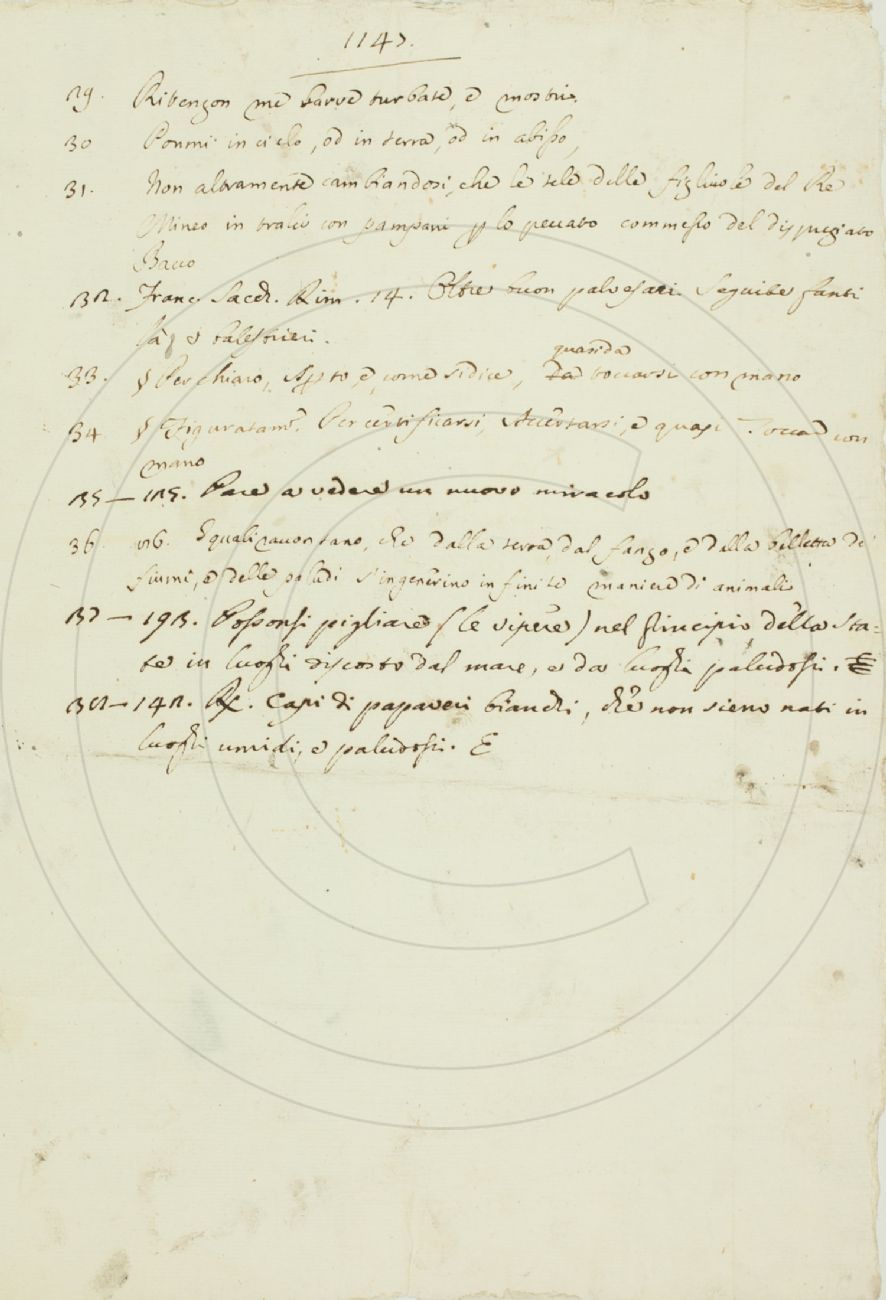 1147.
29. Ritengon me barve turbate, e mostri
30 Ponmi in cielo, od in terra, od in abisso,
31. Non altramente cambiandosi, che le tele delle figliuole del Re
Mineo in tralci con pampani p lo peccato commesso del dispregiato
Bacco
32. Franc. Sacch. Rim. 14. Oltre buon palvesari. Seguite fanti
e balestrieri.
33. § Per chiaro, Apto e, come si dice, Da quasi da toccarsi con mano
34 § Figuratam. Per certificarsi, Accertarsi, e quasi Toccar con
mano
35 — 115. Pare a vedere un nuovo miracolo
36 116. E quali raccontano, che dalla terra, dal fango, e dalla belletta de
fiumi, e delle paludi s'ingenerino infinite maniere di animali
37 — 193. Possonsi pigliare (le vipere) nel principio della sta-
te in luoghi discosto dal mare, e da luoghi paludosi. E
38 — 142. Rx. Capi di papaveri bianchi, che non sieno nati in
luoghi umidi, e paludosi. E